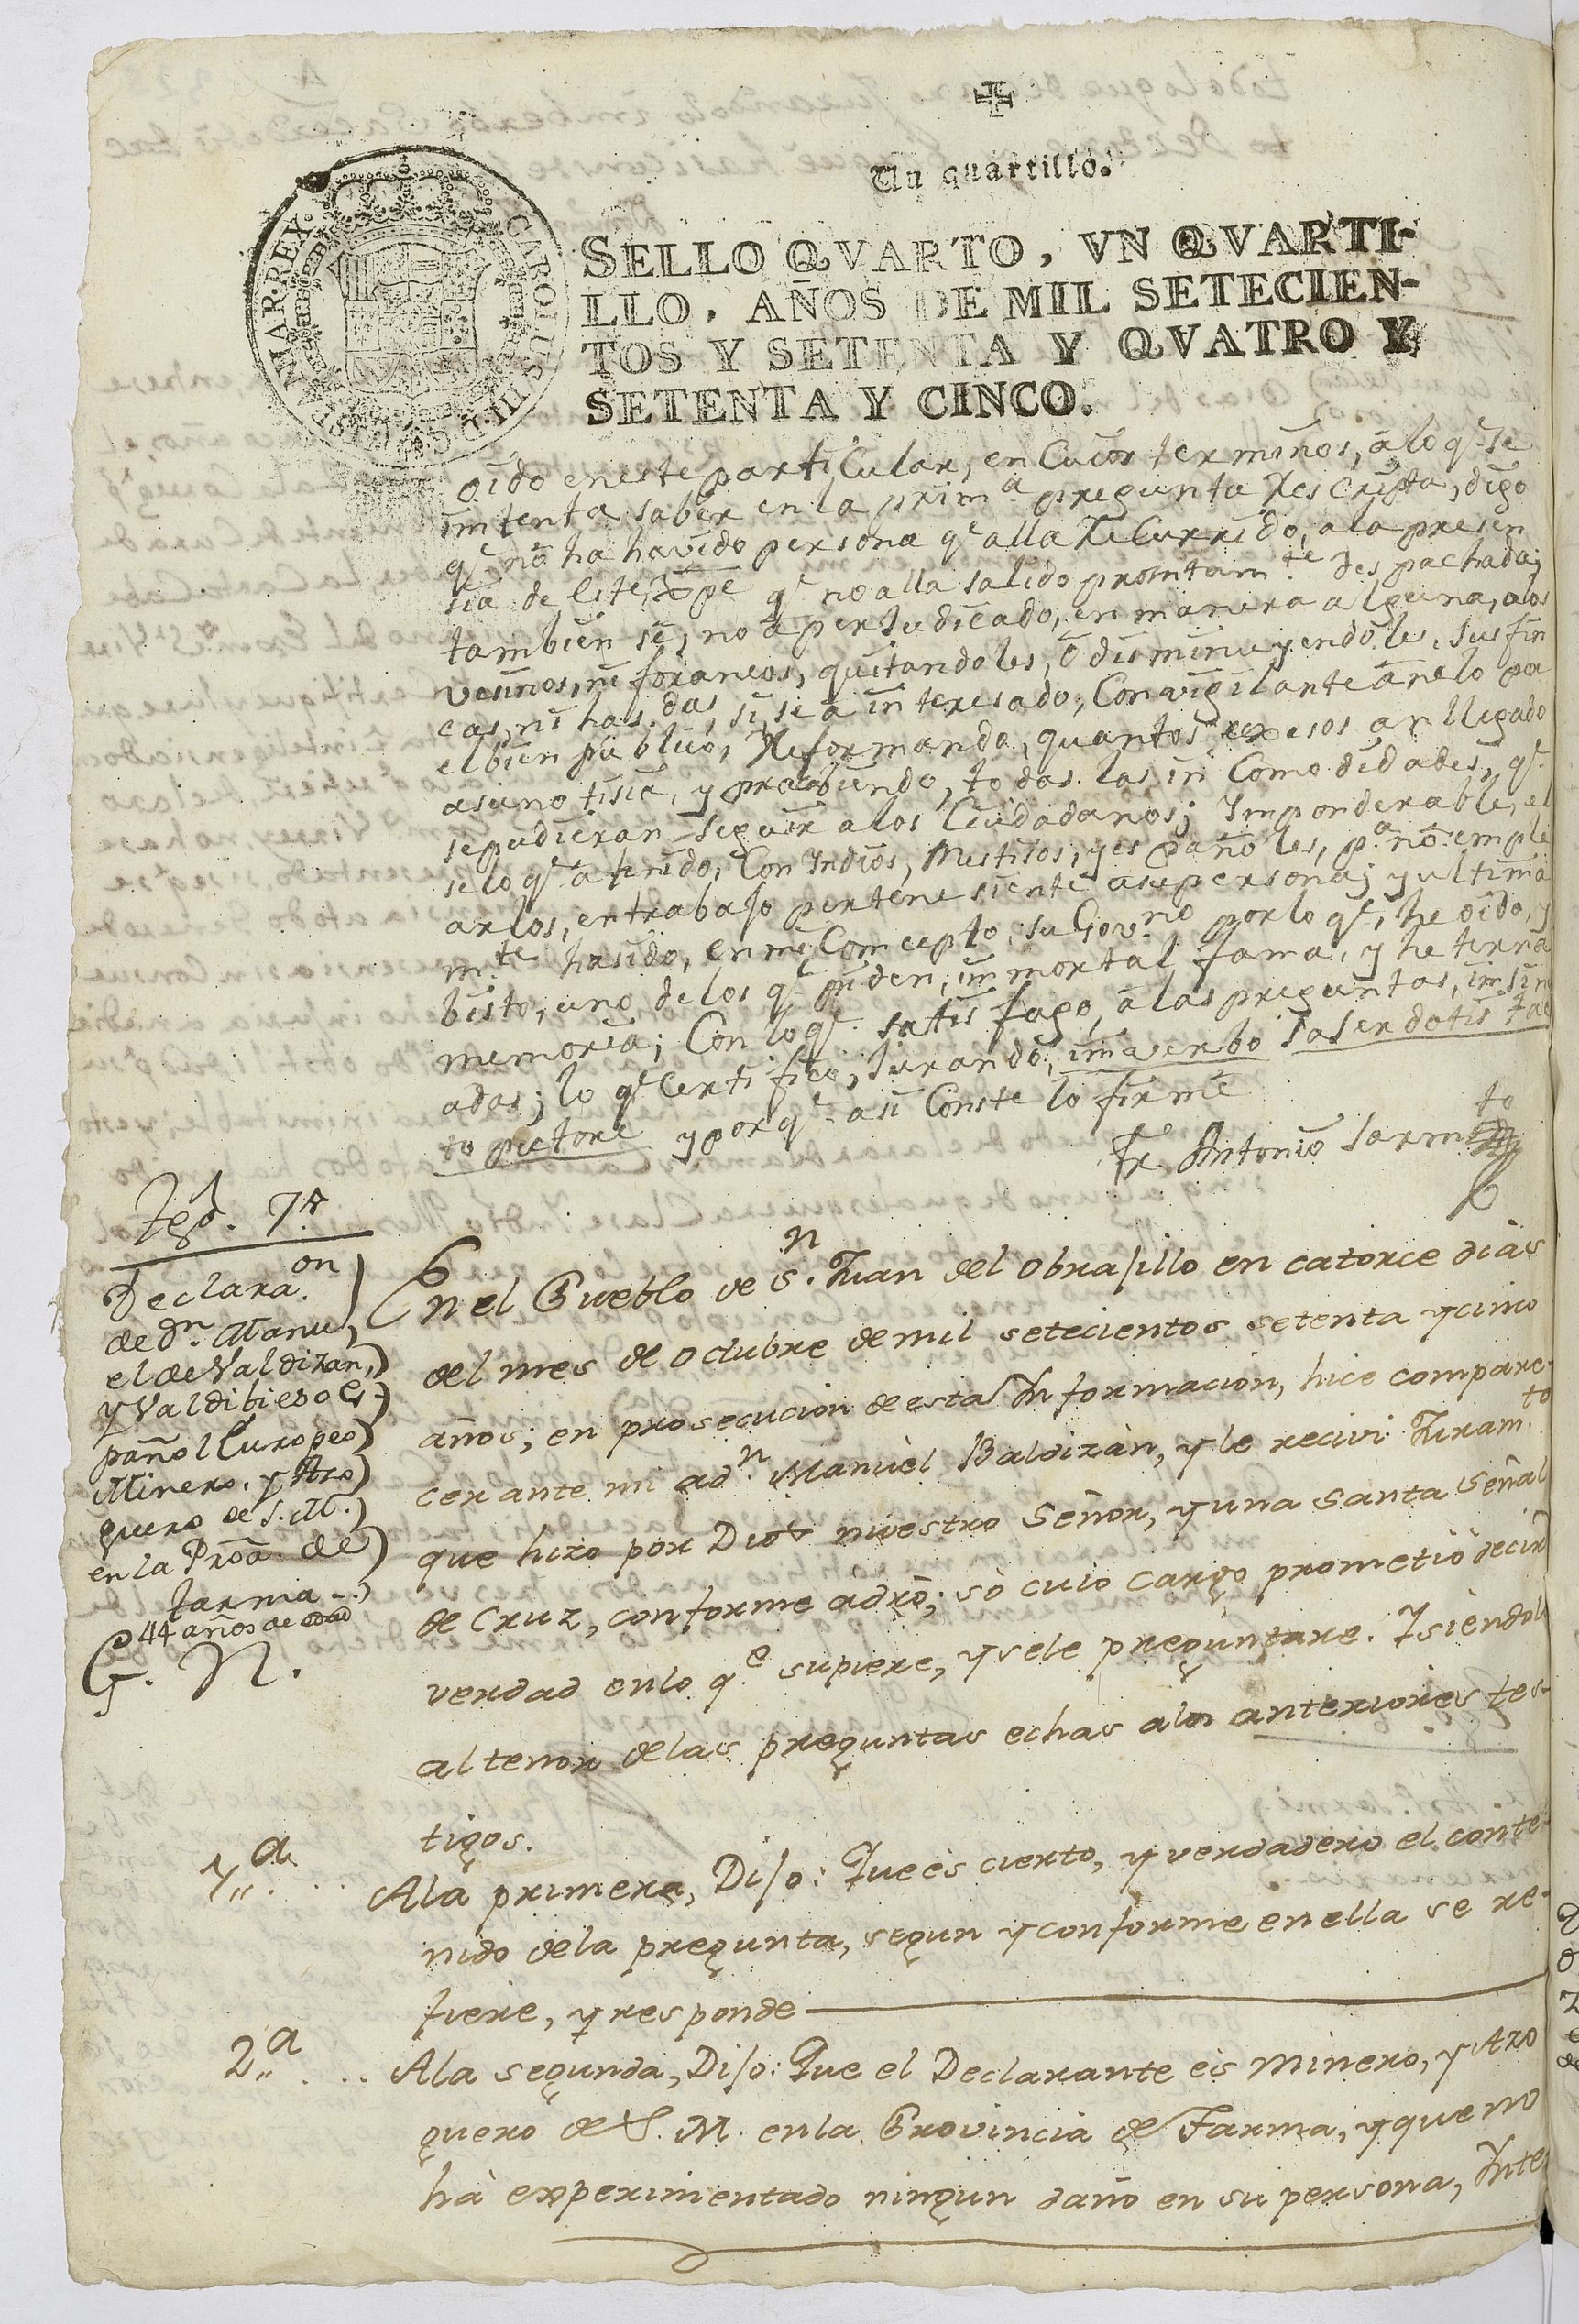 Un quartillo.
CAROLUS III D G HISP MAR REX
SELLO QVARTO, VN QVARTI-
LLO, AÑOS DE MIL SETECIEN-
TOS Y SETENTA Y QVATRO Y
SETENTA Y CINCO.
oido en este particular, en Cuios terminos, a lo q.e se
imtenta saber en la prim.a pregunta Rescripta, digo
q.e no ha havido persona q.e alla ReCurrido, a la presen
sia de q.e no alla salido promtam.te Despachada;
tambien se, no a perJudicado, en manera alguna, a los
vesinos, ni foraneos, quitandoles, o disminuyendoles, sus fin
cas, ni has.das, si, se a interesado, Con vigilante anelo pa
el bien publico, Reformando, quantos exesos an llegado
a su no tisia, y prohibiendo, todas las in Como didades, q.e
se pudieran seguir a los Ciudadanos; Imponderable, el
selo q.e a tenido, Con Indios, Mestisos, y es pañoles, p.a no emple
arlos, en trabajo pertenesiente a su persona; y ultima
m.te ha sido, en mi Comcepto, su Gov.no por lo q.e, he oido, y
bisto, uno de los q.e piden, immortal fama, y heterna
memoria; Con lo q.e satisfago, a las preguntas, imsinu
adas; lo q.e Certifico, Jurando, im verbo saserdotis tac
to pectore y por q.e asi Conste lo firme
Fr. Antonio Sarm.to
Tgo. 7.º
Declara.on
de Dn. Manu
el de Valdizan,
y Valdibieso Es
pañol Europeo
Minero, y Azo
guero de S. M.
en la Proa. de
Tarma
44 años de edad
G. N.
En el Pueblo de S.n Juan del Obrajillo en catorce dias
del mes de Octubre de mil setecientos setenta y cinco
años; en prosecucion de esta Informacion, hice compare-
cer ante mi a d.n Manuel Baldizàn, y le recivi Juram.to
que hizo por Dios nuestro Señor, y una Santa Señal
de Cruz, conforme à dro; so cuio cargo prometiò decir
verdad en lo q.e supiere, y se le preguntare. Y siendole
al tenor de las preguntas echas a los anteriores tes-
tigos.
1.a . . .
A la primera, Dijo: Que es cierto, y verdadero el conte-
nido de la pregunta, segun y conforme en ella se re-
fiere, y responde
2.a . . .
A la segunda, Dijo: Que el Declarante es Minero, y Azo
guero de S. M. en la Provincia de Tarma, y que no
hà experimentado ningun daño en su persona, Inte